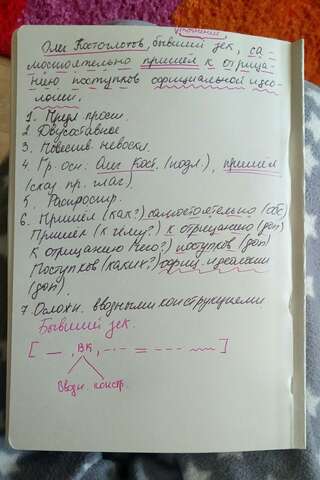 уточнение
Олег Костоглотов, бывший зек, са-
мостоятельно пришёл к отрица-
нию поступков официальной идео-
логии.
1. Предл. прост.
2 Двусоставное
3. Повеств. невоскл.
4. Гр. осн: Олег Кост. (подл.), пришёл
(скаz пр. глаг)
5. Распростр.
6. Пришёл (как?) самостоятельно (обс)
Пришёл (к чему?) к отрицанию (доп)
К отрицанию (чего?) поступков (доп)
Поступков (каких?) официц. идеологии
(доп).
7. Осложн. вводными конструкциями
Бывший зек.
[ — , ВК, -·- = --- ~~~ ]
Вводн. констр.